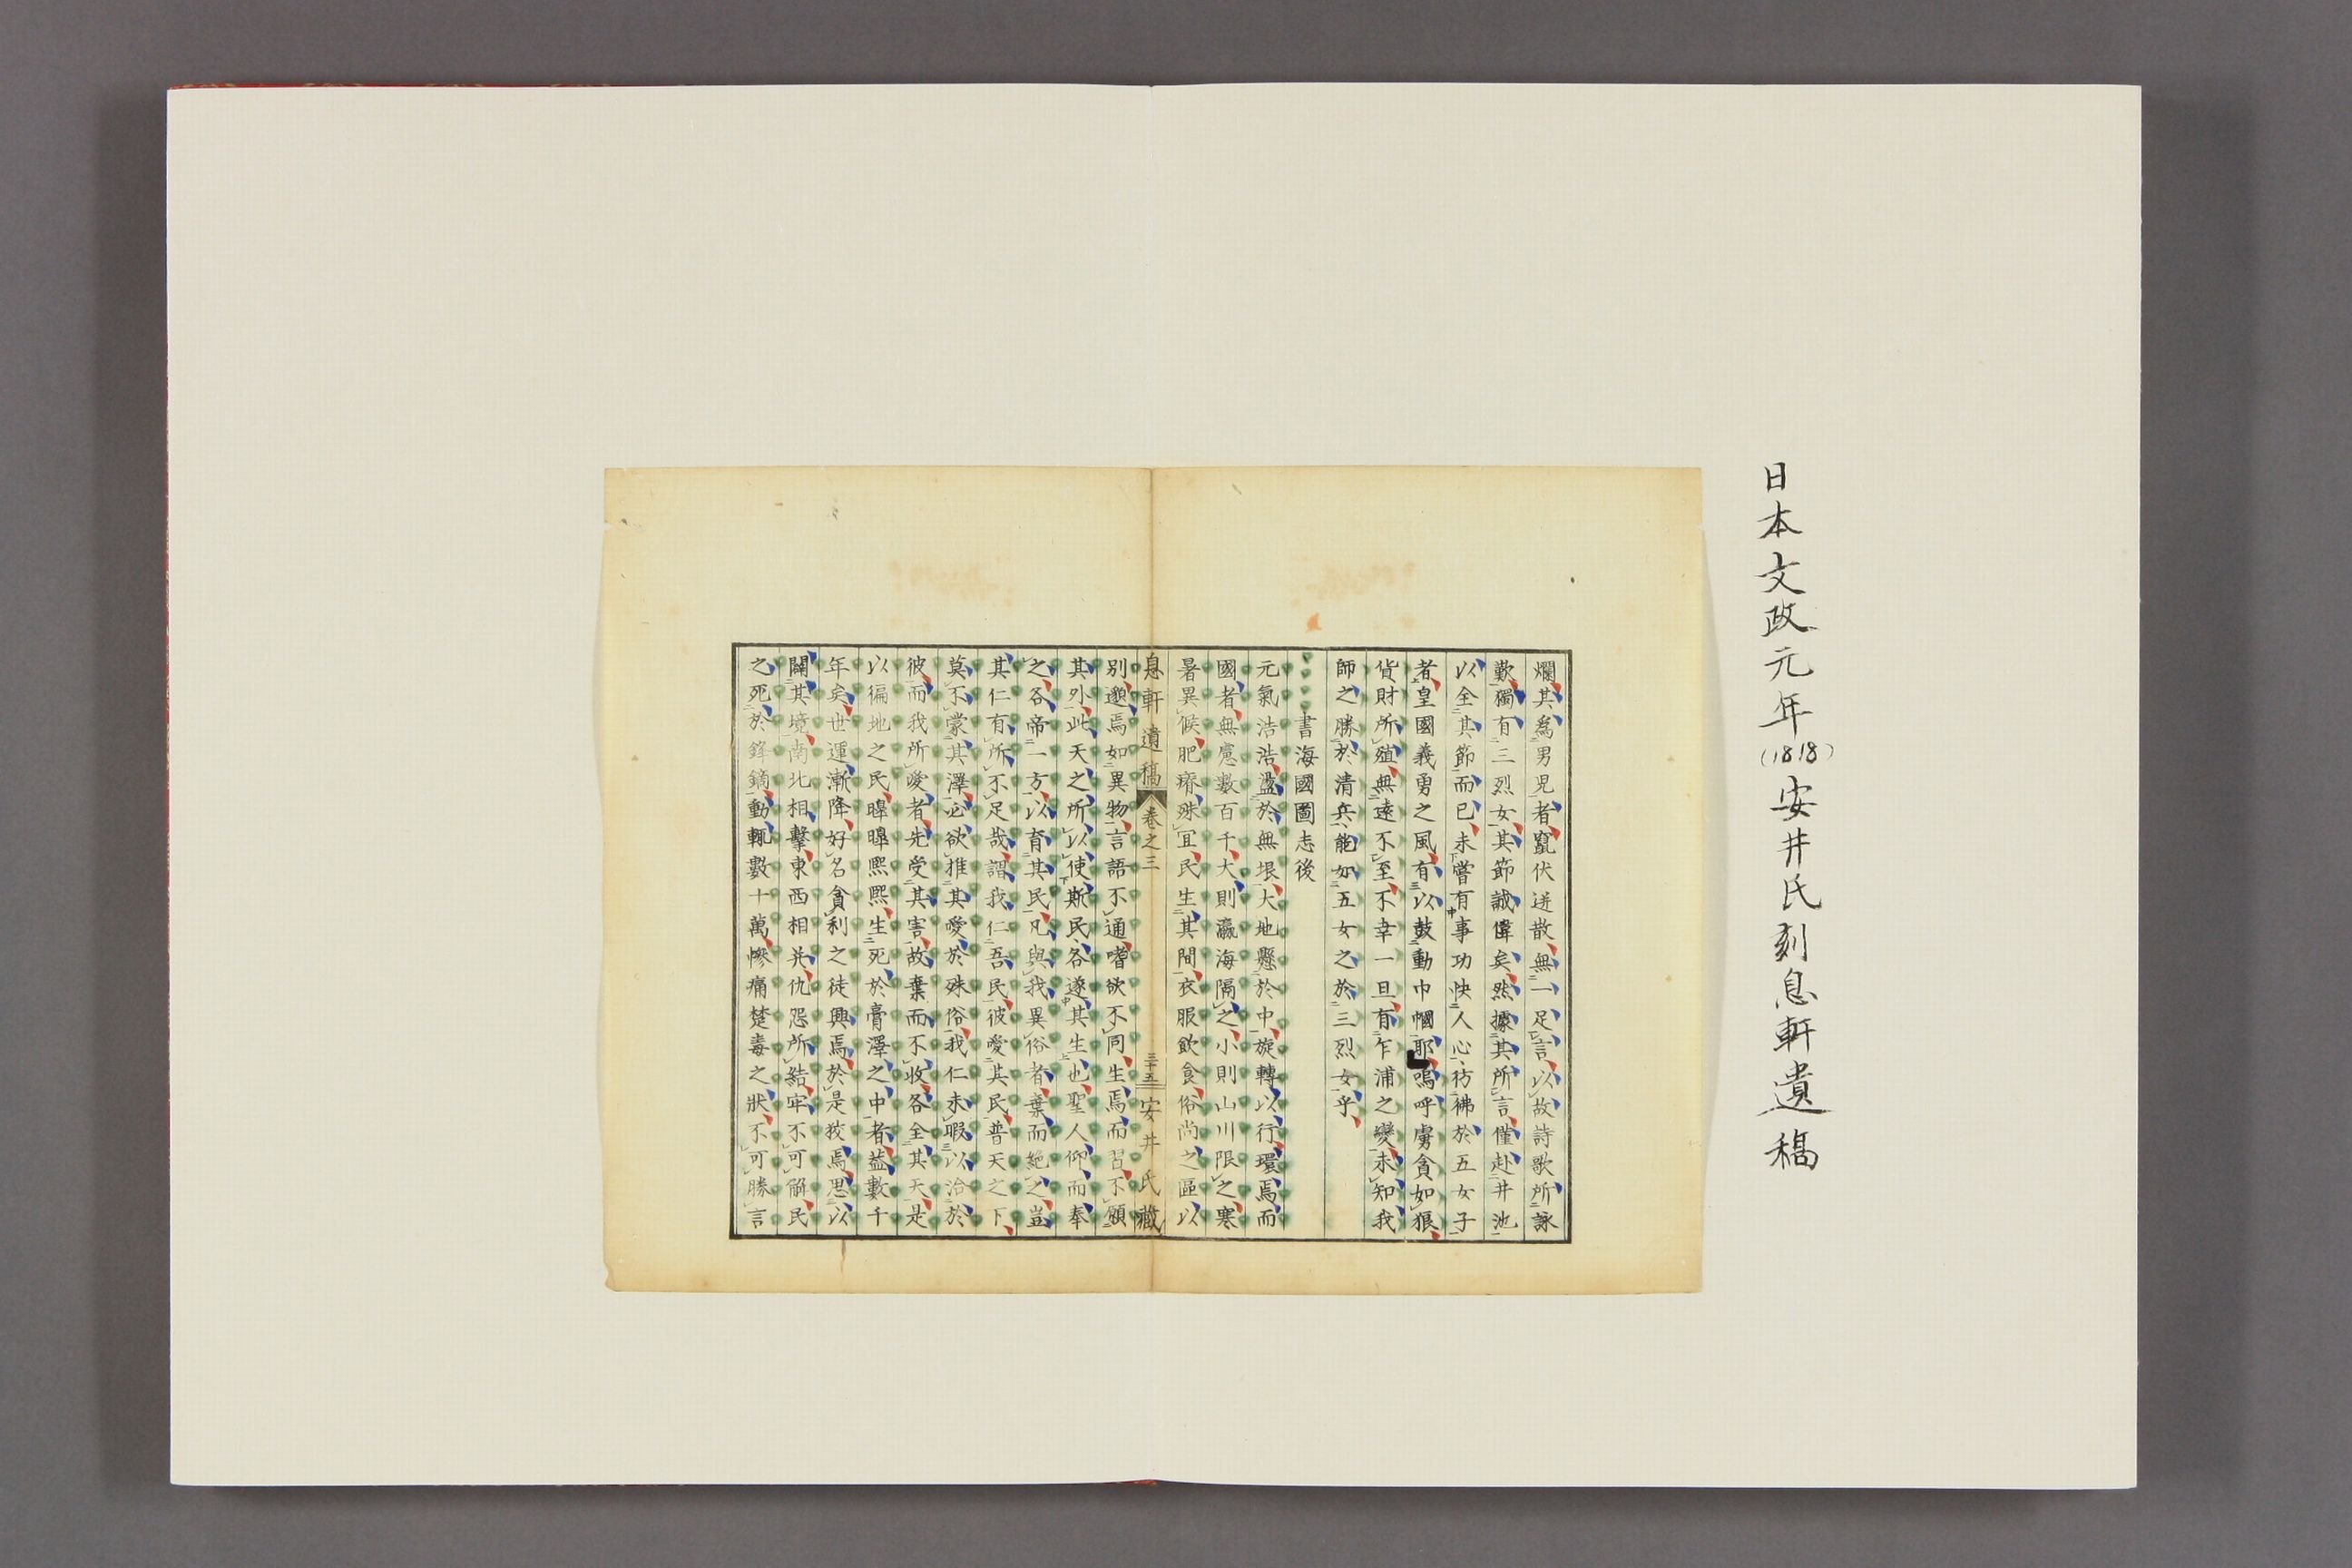 日本文政元年(1818)安井氏刻息軒遺稿
爛其爲男児者竄伏迸散無一足言以故詩歌所詠
歎獨有三烈女其節誠偉矣然據其所言僅赴井池
以全其節而已未嘗有事功快人心彷彿於五女子
者皇國義勇之風有以鼓動巾幗耶嗚呼虜貪如狼
貨財所殖無遠不至不幸一旦有乍浦之變未知我
師之勝於清兵能如五女之於三烈女乎
書海國圖志後
元氣浩浩盈於無垠大地懸於中旋轉以行環焉而
國者無慮數百千大則瀛海隔之小則山川限之寒
暑異候肥瘠殊宜民生其間衣服飲食俗尚之區以
息軒遺稿 卷之三 三十五 安井氏藏
別邈焉如異物言語不通嗜欲不同生焉而習不願
其外此天之所以使斯民各遂其生也聖人仰而奉
之各帝一方以育其民凡與我異俗者棄而絕之豈
其仁有所不足哉謂我仁吾民彼愛其民普天之下
莫不蒙其澤必欲推其愛於殊俗我仁未暇以洽於
彼而我所愛者先受其害故棄而不收各全其天是
以徧地之民皥皥熙熙生死於膏澤之中者蓋數千
年矣世運漸降好名貪利之徒興焉於是狡焉思以
闢其境南北相擊東西相并仇怨所結牢不可解民
之死於鋒鏑動輒數十萬慘痛楚毒之狀不可勝言